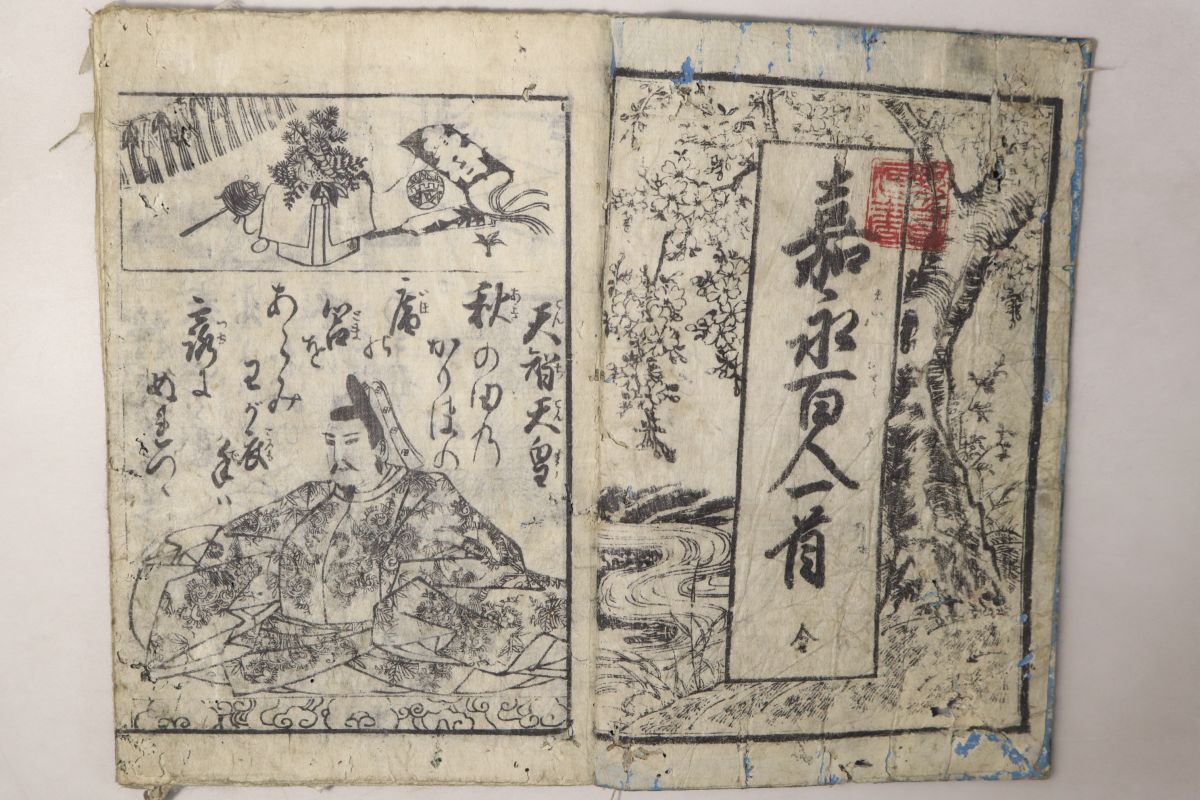 嘉永百人一首
全
天智天皇
秋の田乃
かりほの
庵の
苫を
あらみ
わが衣
手ハ
露に
ぬれつゝ